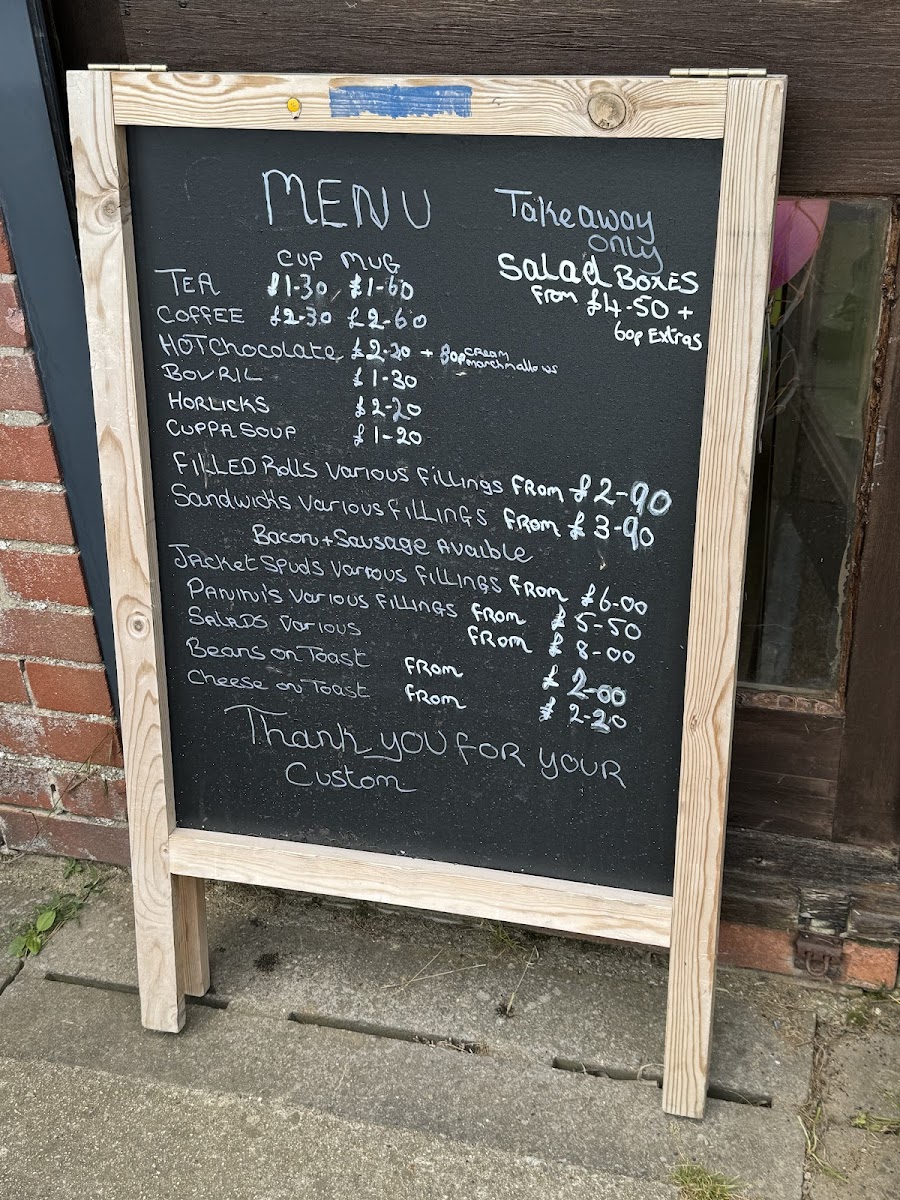 MENU
CUP MUG
TEA £1-30 £1-60
COFFEE £2-30 £2-60
HOT Chocolate £2-20 + 80p CREAM
marshmallows
BOVRIL £1-30
HORLICKS £2-20
CUPPA SOUP £1-20
Takeaway
only
Salad BOXES
From £4-50 +
60p Extras
FILLED Rolls Various Fillings FROM £2-90
Sandwichs Various FILLINGS FROM £3-90
Bacon + Sausage Avaible
Jacket Spuds Various FILLINGS FROM £6-00
Panini's Various FILLINGS FROM £5-50
SALADS Various FROM £8-00
Beans on Toast FROM £2-00
Cheese on Toast FROM £2-20
Thank you FOR YOUR
Custom